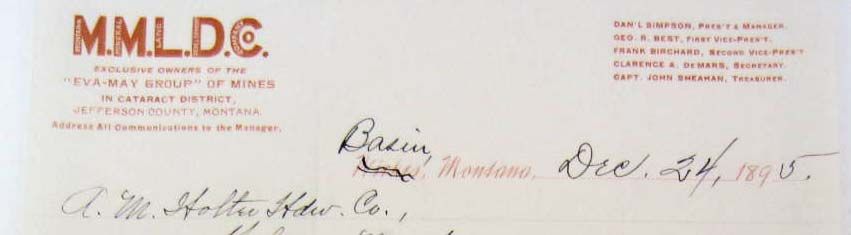 M.M.L.D.Co.
EXCLUSIVE OWNERS OF THE
"EVA-MAY GROUP" OF MINES
IN CATARACT DISTRICT,
JEFFERSON COUNTY, MONTANA.
Address All Communications to the Manager.
DAN'L SIMPSON, PRES'T & MANAGER.
GEO. R. BEST, FIRST VICE-PRES'T.
FRANK BIRCHARD, SECOND VICE-PRES'T
CLARENCE A. DEMARS, SECRETARY.
CAPT. JOHN SHEAHAN, TREASURER.
Basin,
Montana, Dec. 24, 1895.
A. M. Holter Hdw. Co.,